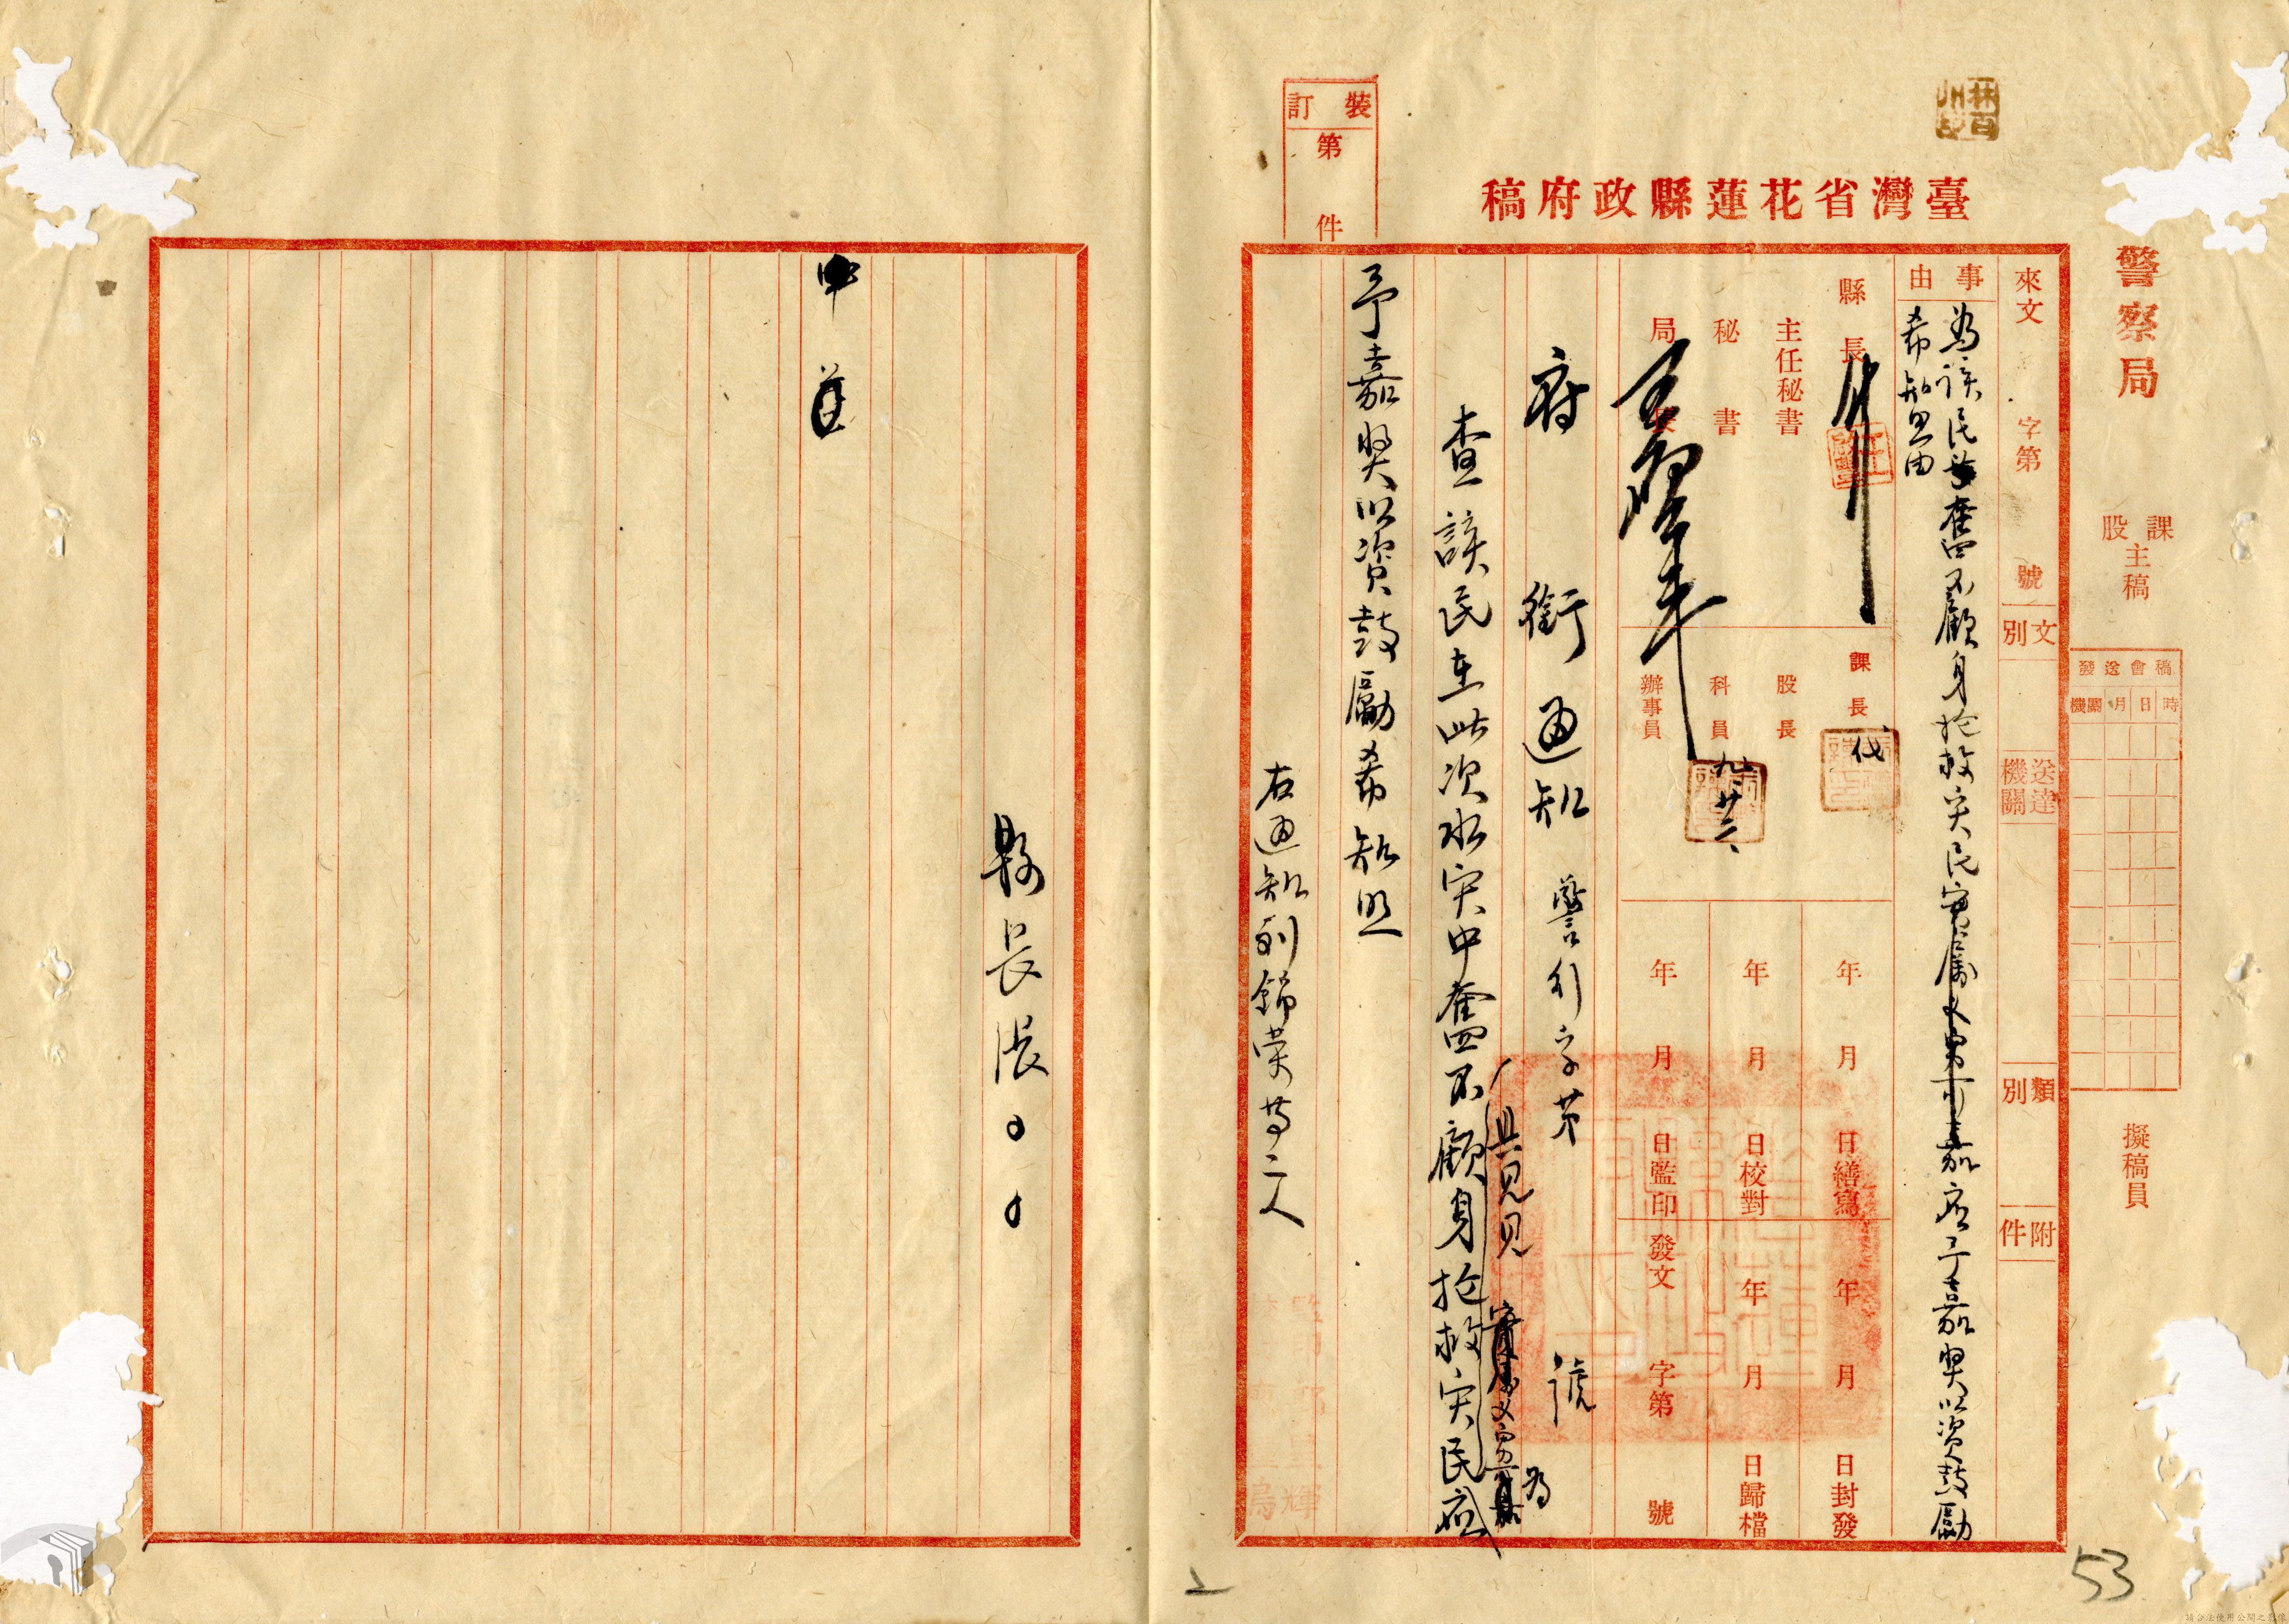 臺灣省花蓮縣政府稿
警察局
課
股
主稿
擬稿員
稿會送發
時日月機關
來文
字第
號
文別
送達機關
類別
附件
事由
為該民等奮不顧身搶救災民應予嘉獎以資鼓勵
希知照由
縣長
主任秘書
秘書
局
課長
代
股長
科員
九廿二
辦事員
年月日繕寫
年月日校對
年月日監印
年月日封發
年月日歸檔
發文
字第
號
府銜通知
警行字第
號
為
具見
查該民在此次水災中奮不顧身搶救災民應
予嘉獎以資鼓勵希知照
右通知列錦榮等二人
裝訂
第
件
縣長張
53
2
請合法使用公開之影像